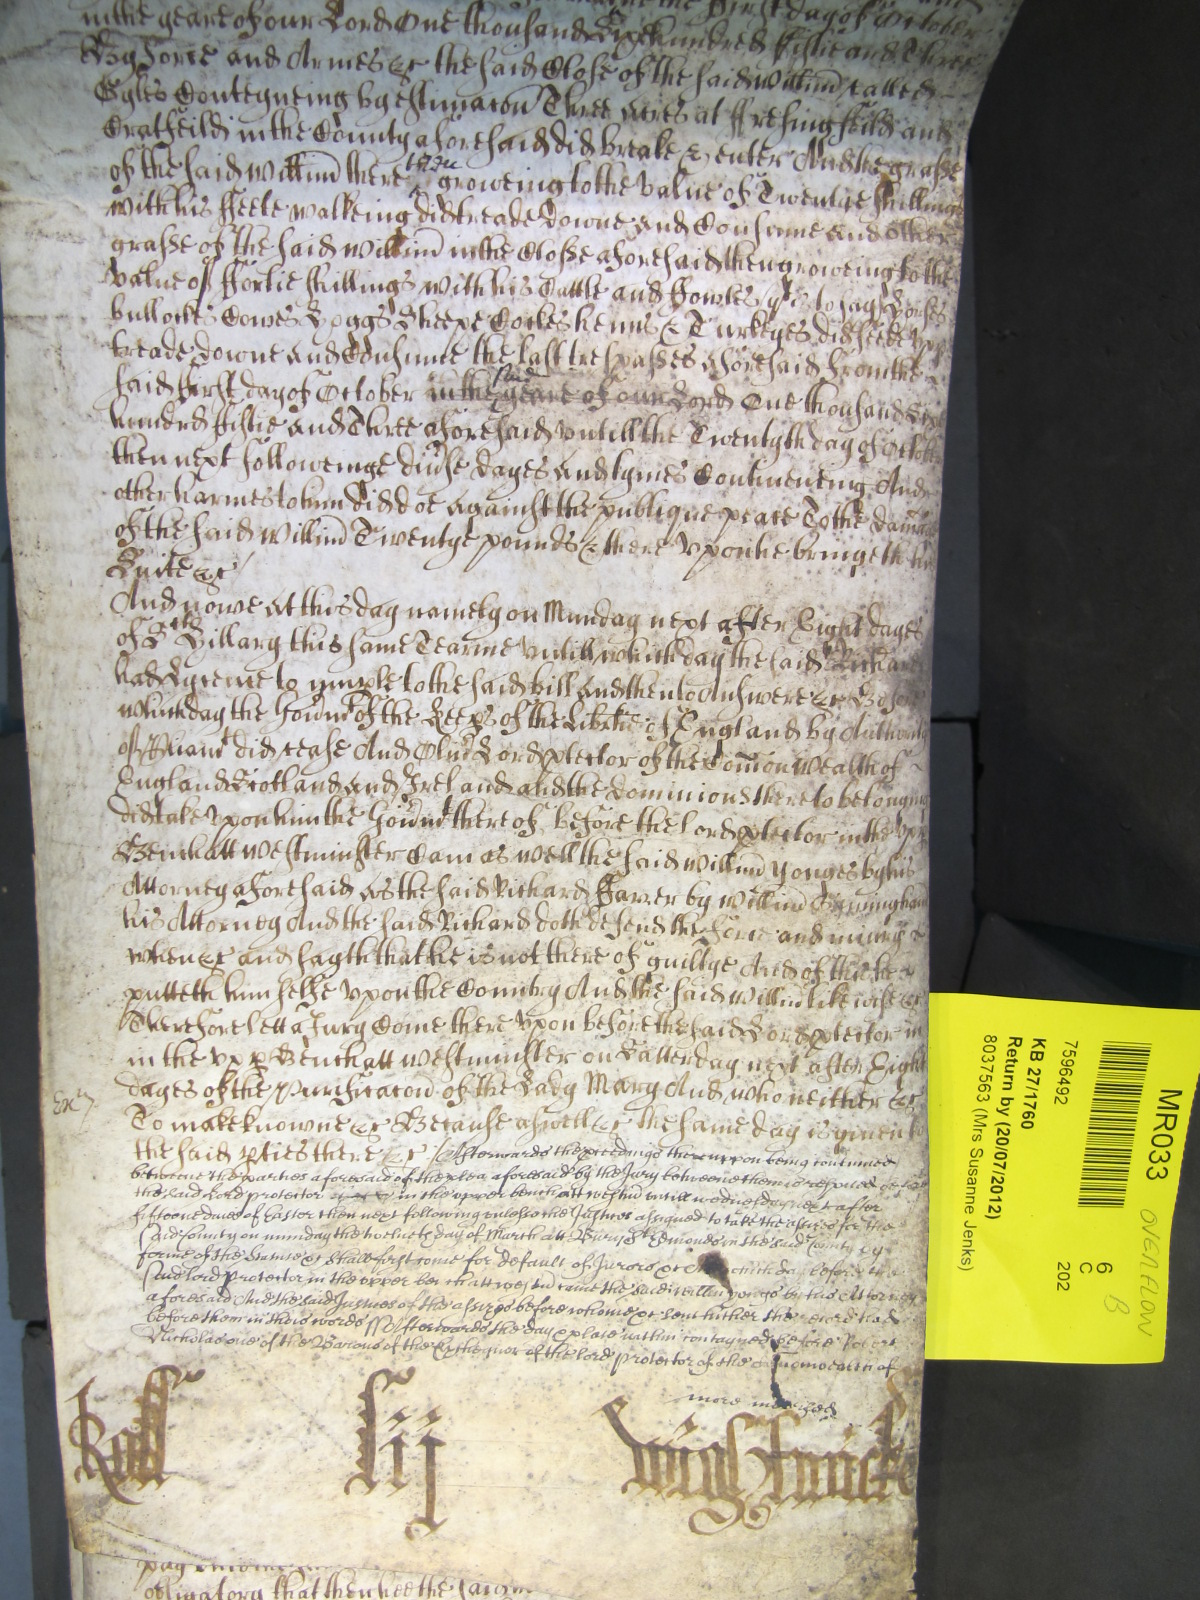 in the yeare of our Lord One thousand Sixe hundred fiftie and Three
By force and Armes &c the said Close of the said Willim called
Gyles Conteyneing by estimacon Three acres at ffresingfeild and
Cratfeild in the County aforesaid did breake & enter And the grasse
of the said Willim there then groweing to the value of Twentye shillings
with his ffeete walkeing did treade downe and Consume and other
grasse of the said Willim in the Closse aforesaid then groweing to the
value of ffortie shillings with his Cattle and ffowles to say Horses
bullockes Cowes Hoggs Sheepe Cockes henns & Turkeyes did feede upp
treade downe and Consume the last trespasses aforesaid from the
said first day of October in the said yeare of our Lord One thousand Sixe
hundred fiftie and Three aforesaid untill the Twentyth day of October
then next followeinge diuse dayes and tymes Contineueing And
other harmes to him did doe against the publique peace To the damage
of the said Willim Twentye pounds & there upon he bringeth his
Suite &c
And nowe at this day namely on Munday next after Eight dayes
of St Hillary this same Tearme untill which day the said Richard
had lycence to imple to the said bill and then to Answere &c Before
which day the Goumt of the Keeps of the Libtie of England by Authority
of Parliamt did cease And Oliu Lord ptector of the Comon wealth of
England Scotland and Ireland and the dominions thereto belonging
did take upon him the Goumt thereof before the lord ptector in the upp
Bench att Westminster Cam as well the said Willim Yonges by his
Attorney aforesaid as the said Richard ffarrer by Willim
his Attorney And the said Richard doth defend the force and iniury
when &c and sayth that he is not there of guiltye And of this he
putteth himselfe upon the Country And the said Willim likewise &c
Therefore lett a Jury Come there upon before the said Lord ptector in
in the upp Bench att Westminster on Satterday next after Eight
dayes of the Purificacon of the Lady Mary And who neither &c
To make knowne &c Because aswell &c the same day is given to
the said pties there &c Afterwards the proceedings thereuppon being continued
betweene the parties aforesaid of the plea aforesaid by the Jury betweene them is respited before
the said Lord protector in the upper bench att Westm untill wednesday next after
fifteene daies of Easter then next following unlesse the Justices assigned to take the assizes for the
said County on munday the day of March att Bury St Edmonds in the said County by
forme of the Statute &c shall first come for default of Jurors &c att which day before the
said lord protector in the upper bench att westm came the said Willm yonges by his Attorney
aforesaid And the said Justices of the assizes before whome &c sent hither their record had
before them in theis words Afterwards the day & place within conteyned before Robert
Nicholas one of the Barons of the Exchequer of the lord protector of the commonwealth of
more
Roll
pay
obligatory that then hee the said
MR033
OVERFLOW
B
6
C
202
7596492
KB 27/1760
Return by (20/07/2012)
8037563 (Mrs Susanne Jenks)